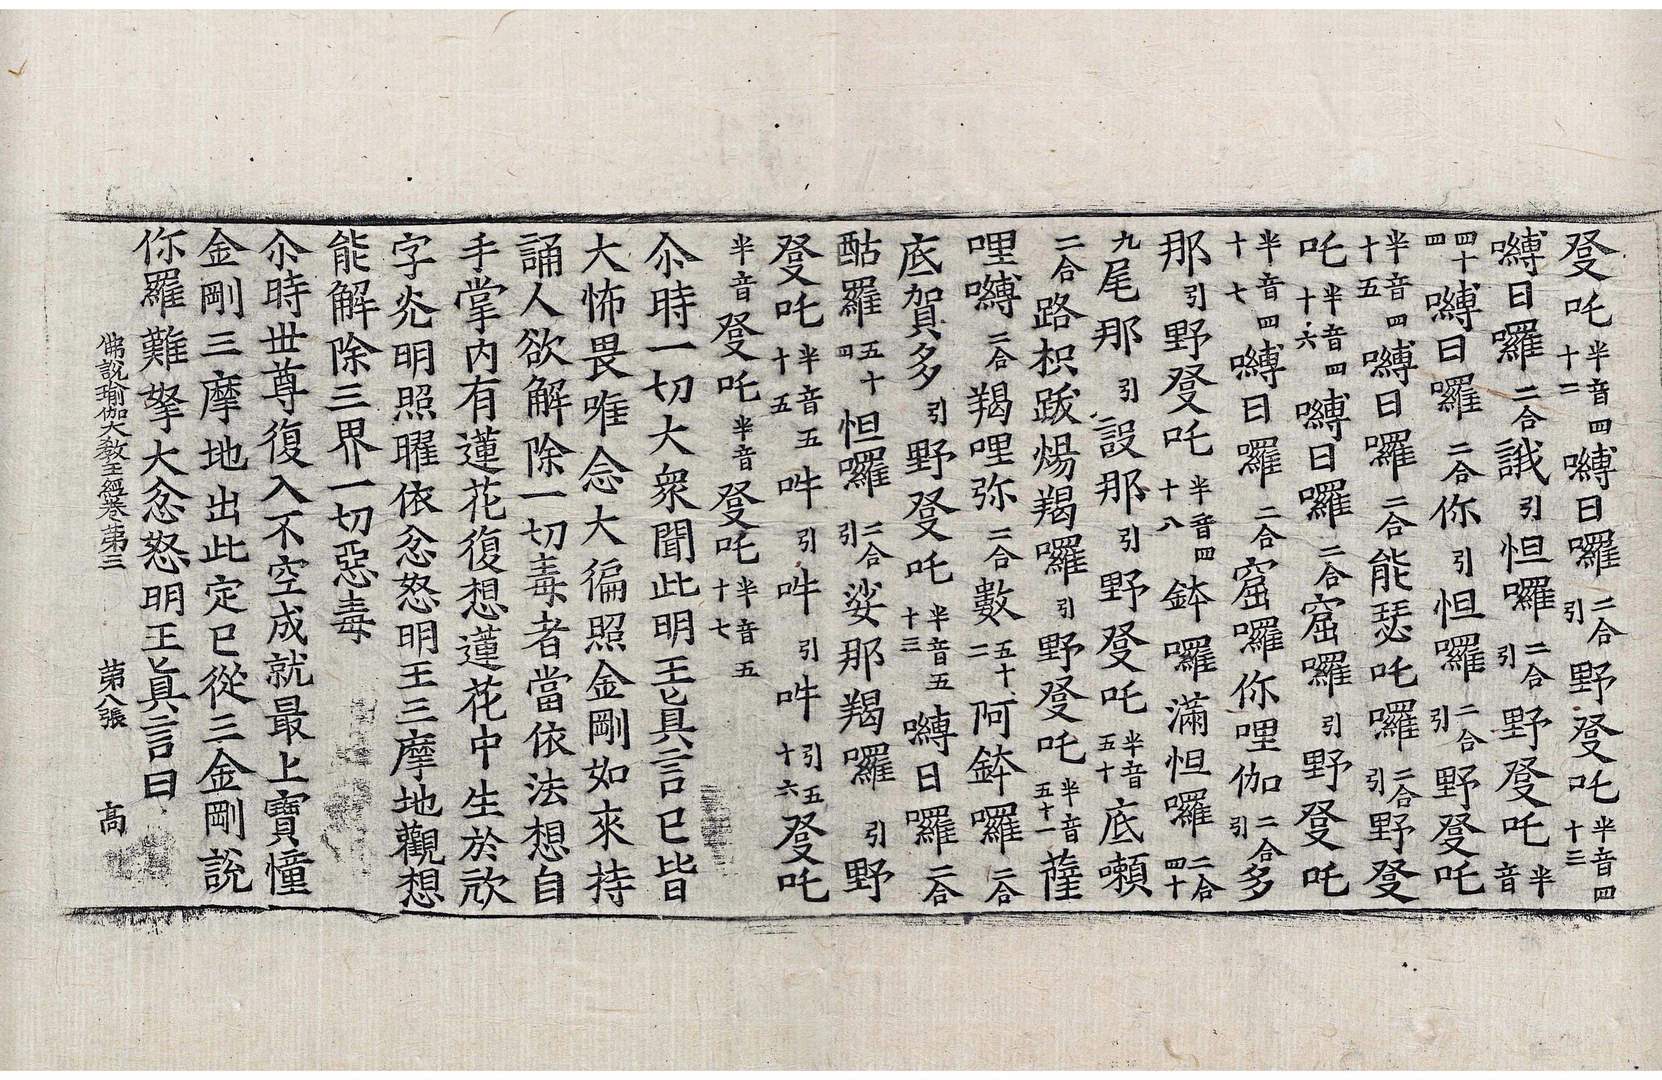 登吒半音四十二嚩日囉二合引野登吒半音四十三
嚩日囉二合誐引怛囉二合引野登吒半音
四十四嚩日囉二合你引怛囉二合引野登吒
半音四十五嚩日囉二合能瑟吒囉二合引野登
吒半音四十六嚩日囉二合窟囉引野登吒
半音四十七嚩日囉二合窟囉你哩伽二合引多
那引野登吒半音四十八鉢囉滿怛囉二合四十
九尾那引設那引野登吒半音五十底嚬
二合路枳跋煬羯囉引野登吒半音五十一薩
哩嚩二合羯哩弥二合數五十二阿鉢囉二合
底賀多引野登吒半音五十三嚩日囉二合
酤羅五十四怛囉二合引娑那羯囉引野
登吒半音五十五吽引吽引吽引五十六登吒
半音登吒半音登吒半音五十七
尒時一切大衆聞此明王真言已皆
大怖畏唯念大徧照金剛如來持
誦人欲解除一切毒者當依法想自
手掌内有蓮花復想蓮花中生於欱
字光明照曜依忿怒明王三摩地觀想
能解除三界一切惡毒
尒時世尊復入不空成就最上寶幢
金剛三摩地出此定已從三金剛說
你羅難拏大忿怒明王真言曰
佛說瑜伽大教王經卷第三 第八張 高